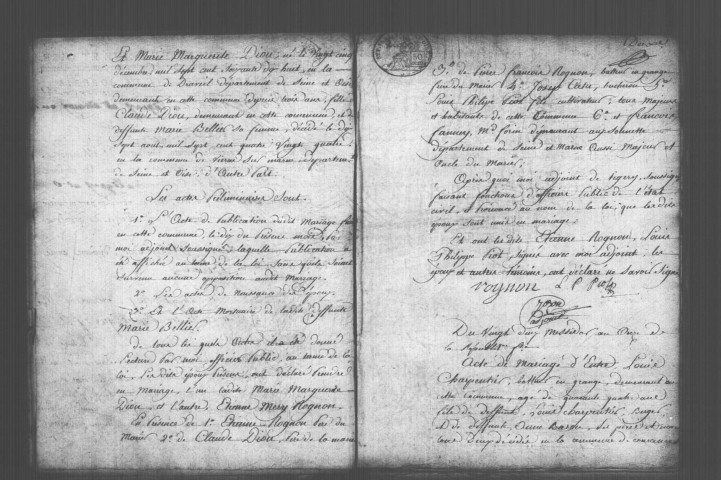 Et Marie Marguerite Diou, né le Vingt cinq
décembre mil sept cent soixante dix huit, en la
commune de Draveil département de Seine et Oise
demeurant en cette commune depuis trois ans fille
Claude Diou, demeurant en cette commune, et de
deffunte marie Bellier sa femme, décédé le dix
Sept aout mil sept cent quatre Vingt quatre
en la commune de département
de Seine et Oise. d'autre part
Les actes Préliminaires Sont.
1° L'Acte de Publication dudit Mariage
en cette commune, le dix du Présent mois,
moi adjoint soussigné, laquelle Publication a
été affiché au terme de la loi, sans qu'ils soient
survenu aucune opposition audit Mariage.
2° Les actes de Naissances des époux,
3° Et l'acte Mortuaire de ladite deffunte
Marie Bellier
de tous les quels actes il a été donné
Lecture Par moi officier Public, au terme de la
loi, les dits époux Présens, ont déclaré Prendre
en mariage, l'un ladite Marie Marguerite
Diou, et l'autre, Etienne Mery Rognon.
En Présence de 1° Etienne Rognon Pere du
Marié 2° de Claude Diou, Pere de la mariée
3° de Pierre francois Rognon, batteur en grange
frere du Marié 4° Joseph bucheron 5°
Louis Philipe Piot fils, cultivateur; tous Majeurs
et habitants de cette Commune 6° et francois
demeurant
département de Seine et Marne aussi Majeur et
Oncle du Marié.
Après quoi moi adjoint de tigery, soussigné
faisant fonctions d'officier Public de l'état
civil, a Prononcé au nom de la loi, que les dits
époux sont unis en mariage.
Et ont les dits Etienne Rognon, Louis
Philippe Piot, signés avec moi adjoint, les
époux et autres temoins, ont déclaré ne savoir signer
rognon L P Piot
Du Vingt cinq Messidor an Onze de
la République fse
Acte de Mariage d'Entre Louis
Charpentier, batteur en grange, demeurant en
cette commune, age de quarante quatre ans
fils de deffunt, Louis Charpentier, Berger
et de deffunte, ses pere et mere
tous deux décédés en la commune de